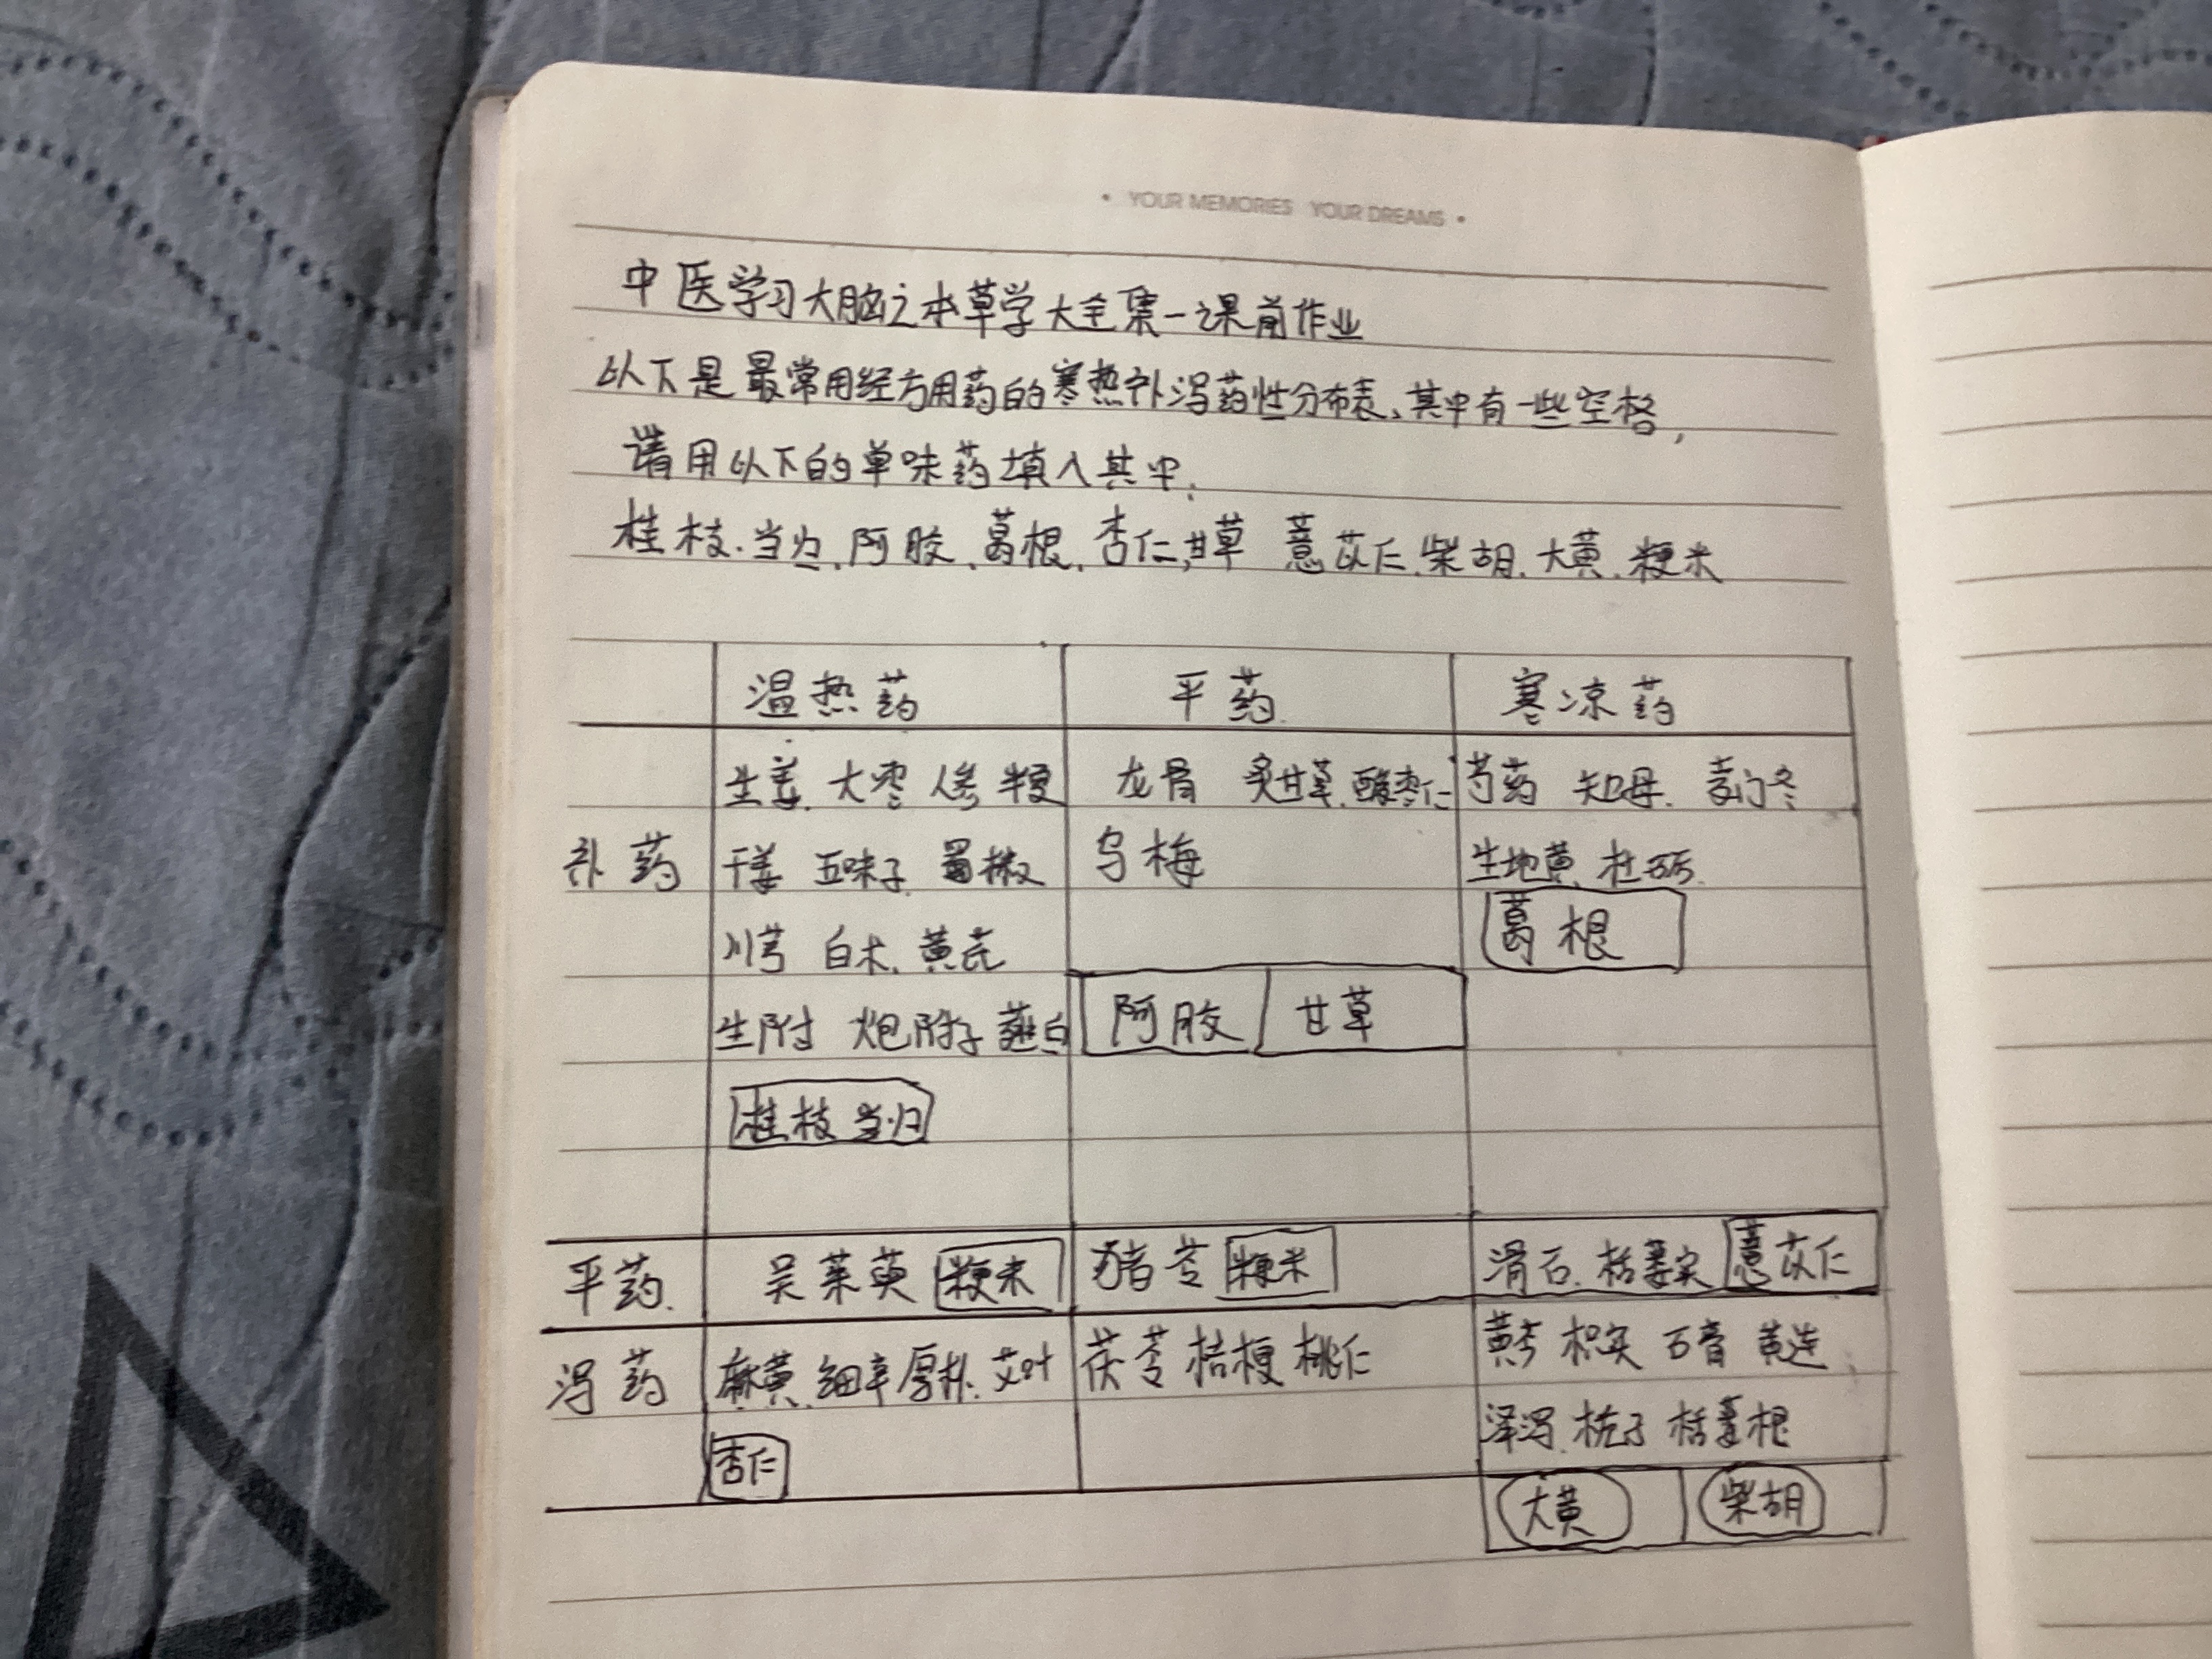 • YOUR MEMORIES YOUR DREAMS •
中医学习大脑之本草学大全集一课前作业
以下是最常用经方用药的寒热补泻药性分布表、其中有一些空格,
请用以下的单味药填入其中:
桂枝.当归.阿胶.葛根.杏仁,甘草 薏苡仁.柴胡.大黄.粳米
温热药 平药. 寒凉药
生姜.大枣 人参 龙骨 炙甘草.酸枣仁 芍药 知母. 麦门冬
补药 干姜 五味子 蜀椒 乌梅 生地黄.牡蛎.
川芎 白术.黄芪 葛根
生附 炮附子 薤白 阿胶 甘草
桂枝 当归
平药. 吴茱萸 粳米 猪苓 粳米 滑石.栝蒌实 薏苡仁
泻药 麻黄.细辛厚朴.艾叶 茯苓 桔梗 桃仁 黄芩 枳实 石膏 黄连
杏仁 泽泻.栀子 栝蒌根
大黄 柴胡